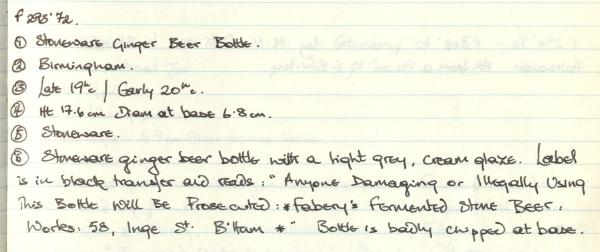 F 293'72.
① Stoneware Ginger Beer Bottle.
② Birmingham.
③ Late 19th C / Early 20th C.
④ Ht 17.6 cm Diam at base 6.8 cm.
⑤ Stoneware.
⑥ Stoneware ginger beer bottle with a light grey, cream glaze. Label
is in black transfer and reads: "Anyone Damaging or Illegally Using
This Bottle Will Be Prosecuted: * Fabery's Fermented Stone Beer:
Works: 58, Inge St. B'ham *" Bottle is badly chipped at base.